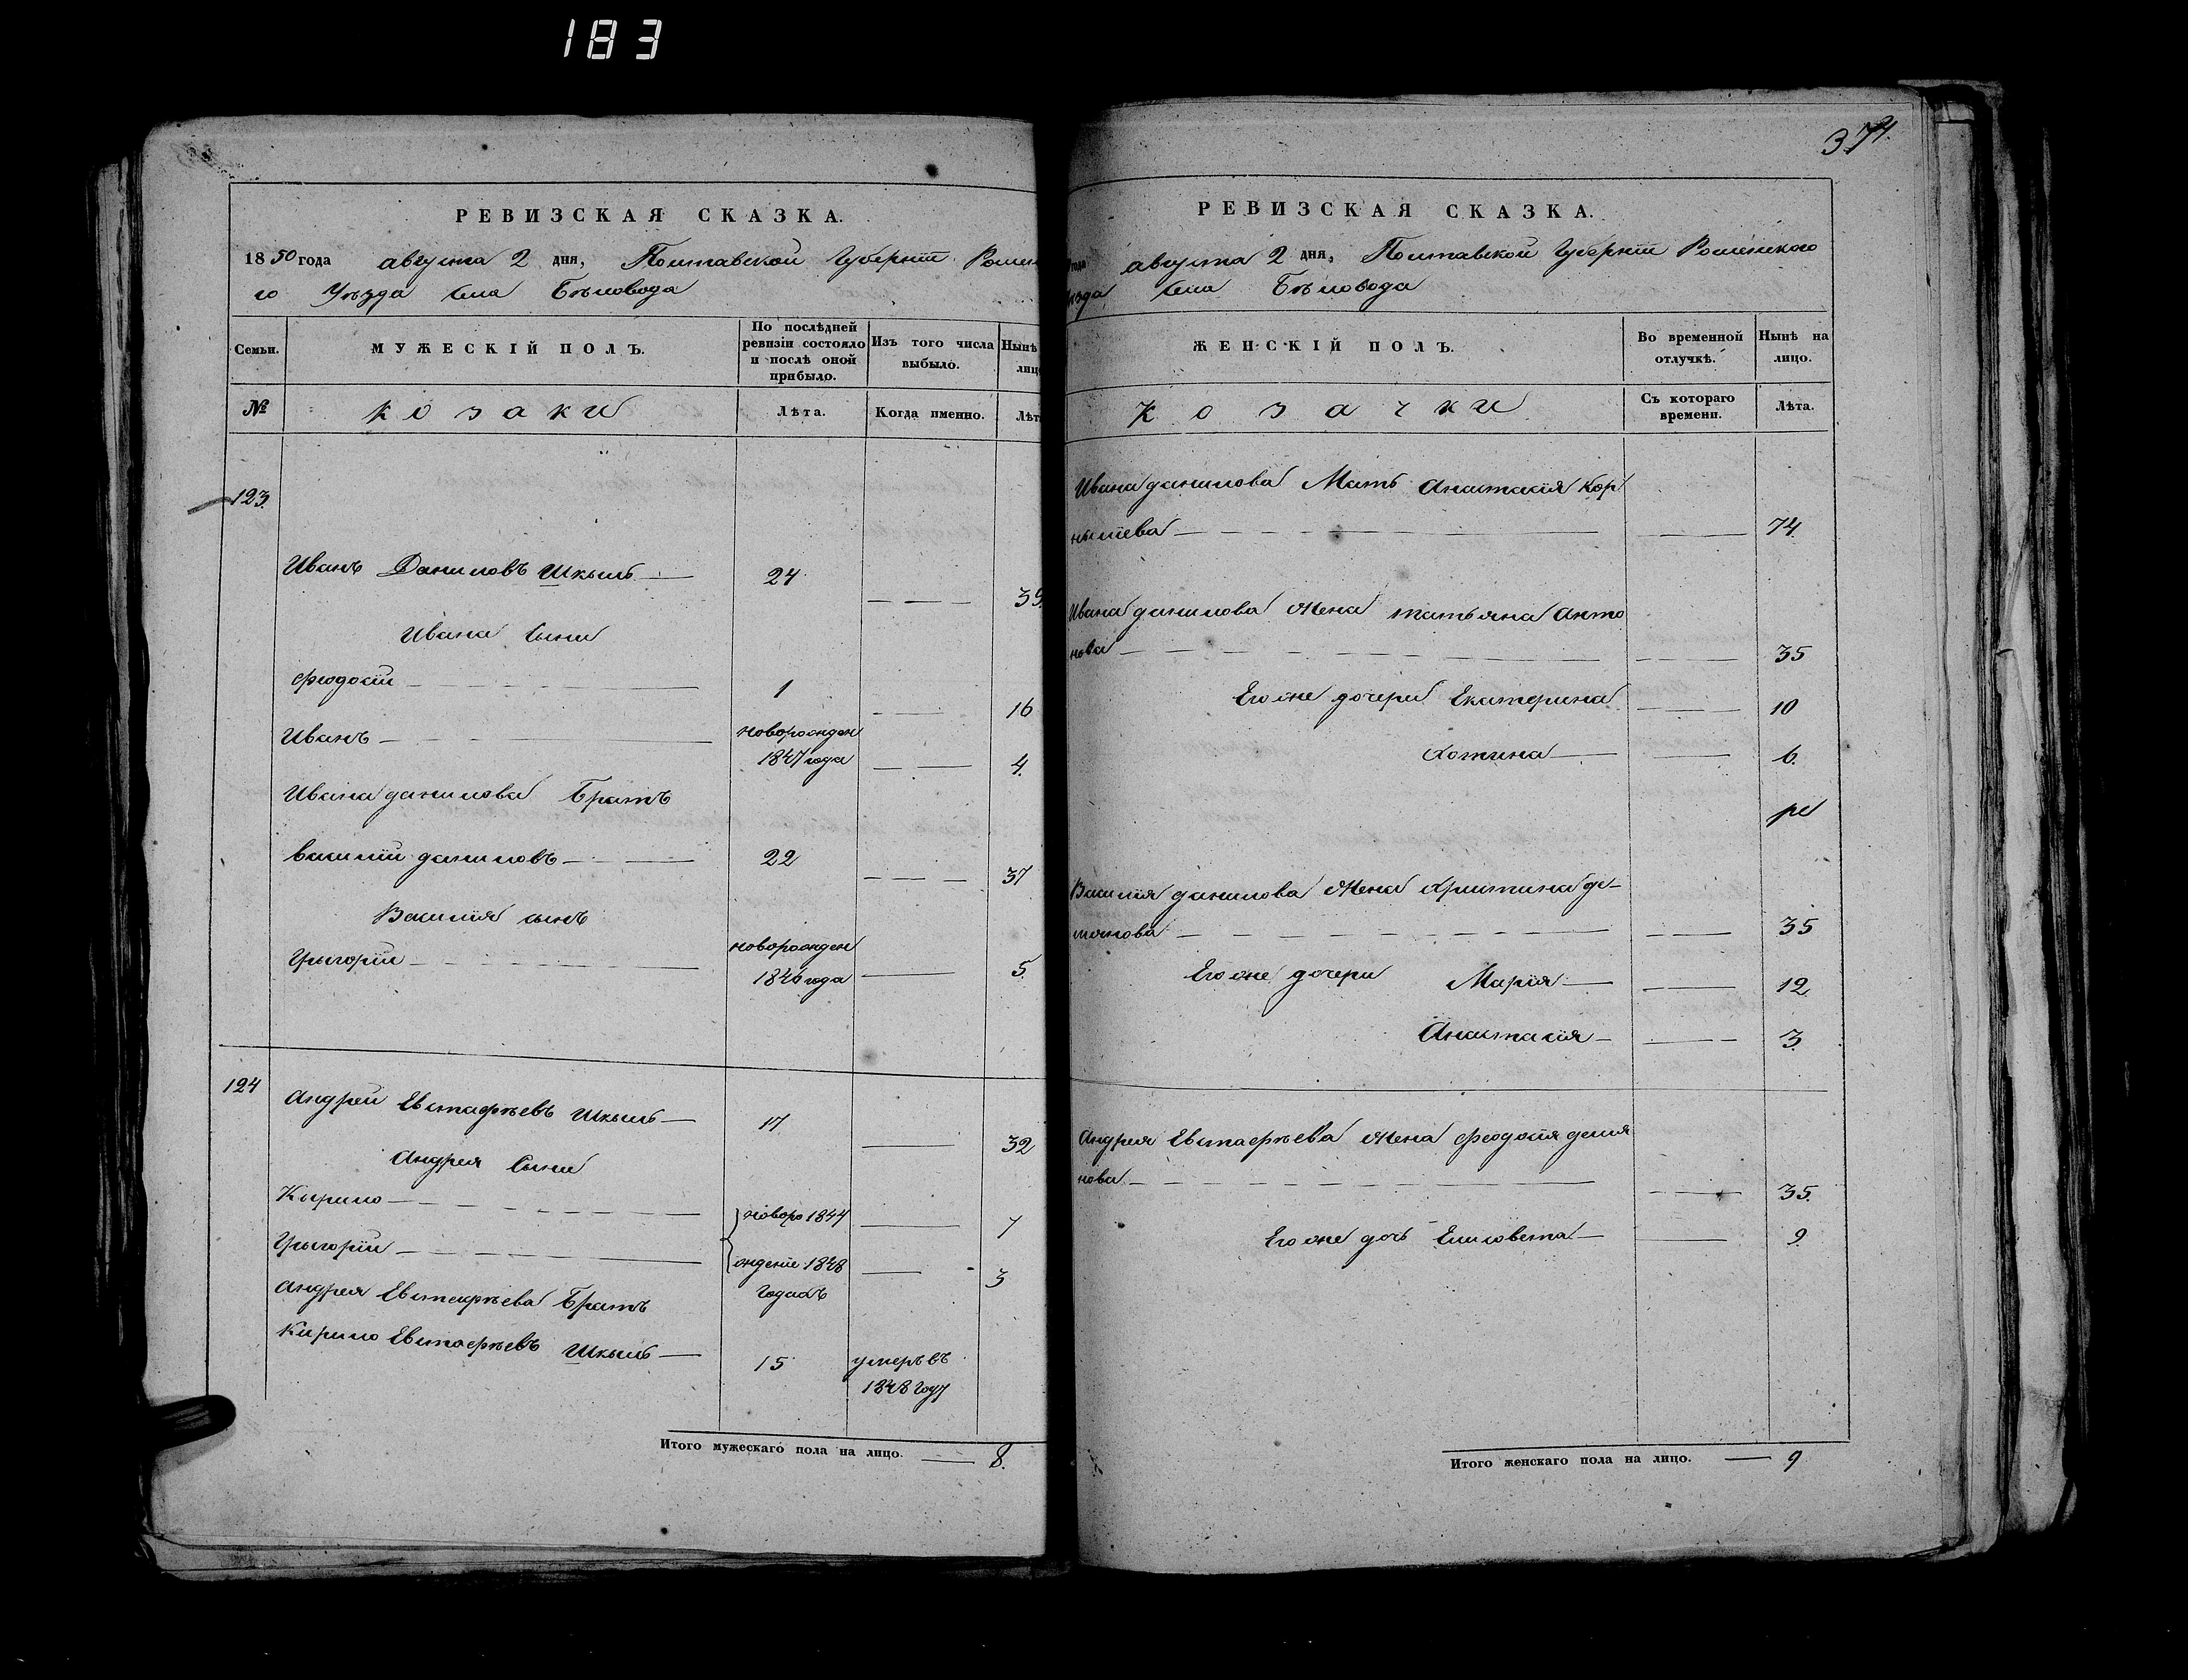 183
РЕВИЗСКАЯ СКАЗКА.
1850 года августа 2 дня, Полтавской Губерніи Ромен
го Уѣзда Села Бѣловода
Семьи.
МУЖЕСКІЙ ПОЛЪ.
По послѣдней
ревизіи состояло
и послѣ оной
прибыло.
Изъ того числа
выбыло.
Нынѣ
лиц
№
козаки
Лѣта.
Когда именно.
Лѣт
123.
Иванъ Даниловъ Шкыль 24 39.
Ивана Сыни
Феодосій 1 16
Иванъ новорожден
1847 года 4.
Ивана данилова Братъ
василій даниловъ 22 37
Василія сынъ
Грыгорій новорожден
1846 года 5.
124
Андрей Евстафѣевъ Шкыль 17 32
Андрея Сыни
Кырило новоро 1844 7
Грыгорій ждение 1848 3
Андрея Евстафѣева Братъ годахъ
Кирило Евстафѣевъ Шкыль 15 умеръ въ
1848 году
Итого мужескаго пола на лицо. 8.
374.
РЕВИЗСКАЯ СКАЗКА.
года августа 2 дня, Полтавской Губерніи Роменского
ѣзда Села Бѣловода
ЖЕНСКІЙ ПОЛЪ.
Во временной
отлучкѣ.
Нынѣ на
лицо.
Козачки
Съ котораго
времени.
Лѣта.
Ивана данилова Мать Анастасія Кор
ныліева 74.
Ивана данилова Жена татьяна Анто
нова 35
Его же дочери Екатерина 10
Хотина 6.
Василія данилова Жена Христина де-
мянова 35
Его же дочери Марія 12.
Анастасія 3.
Андрея Евстафѣева Жена Феодосія демя
нова 35.
Его же дочь Елисовета 9.
Итого женскаго пола на лицо. 9